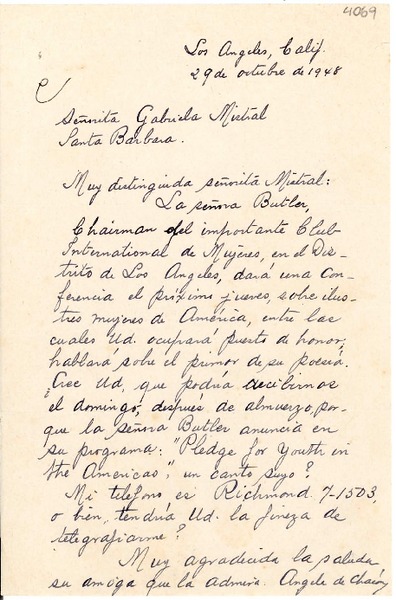 4069
Los Angeles, Calif.
29 de octubre de 1948
Señorita Gabriela Mistral
Santa Barbara.
Muy distinguida señorita Mistral:
La señora Butler,
Chairman del importante Club
International de Mujeres, en el Dis-
trito de Los Angeles, dará una Con-
ferencia el próximo jueves, sobre ilus-
tres mujeres de América, entre las
cuales Ud. ocupará puesto de honor;
hablará sobre el primor de su poesía.
¿Cree Ud, que podría recibirnos
el domingo, después de almuerzo, por-
que la señora Butler anuncia en
su programa: "Pledge for Youth in
the Americas", un canto suyo?
Mi teléfono es Richmond 7-1503,
o bien, tendría Ud. la fineza de
telegrafiarme?
Muy agradecida la saluda
su amiga que la admira. Angele de Chacón